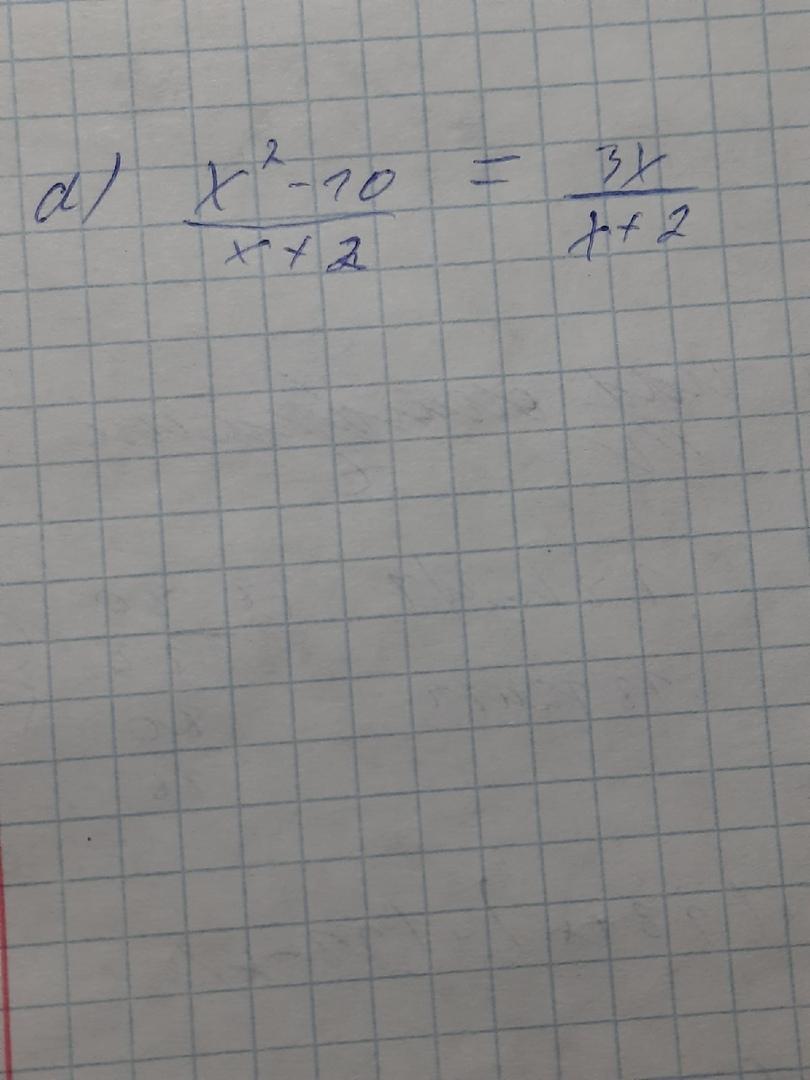 d) x² - 10 / x + 2 = 3x / x + 2